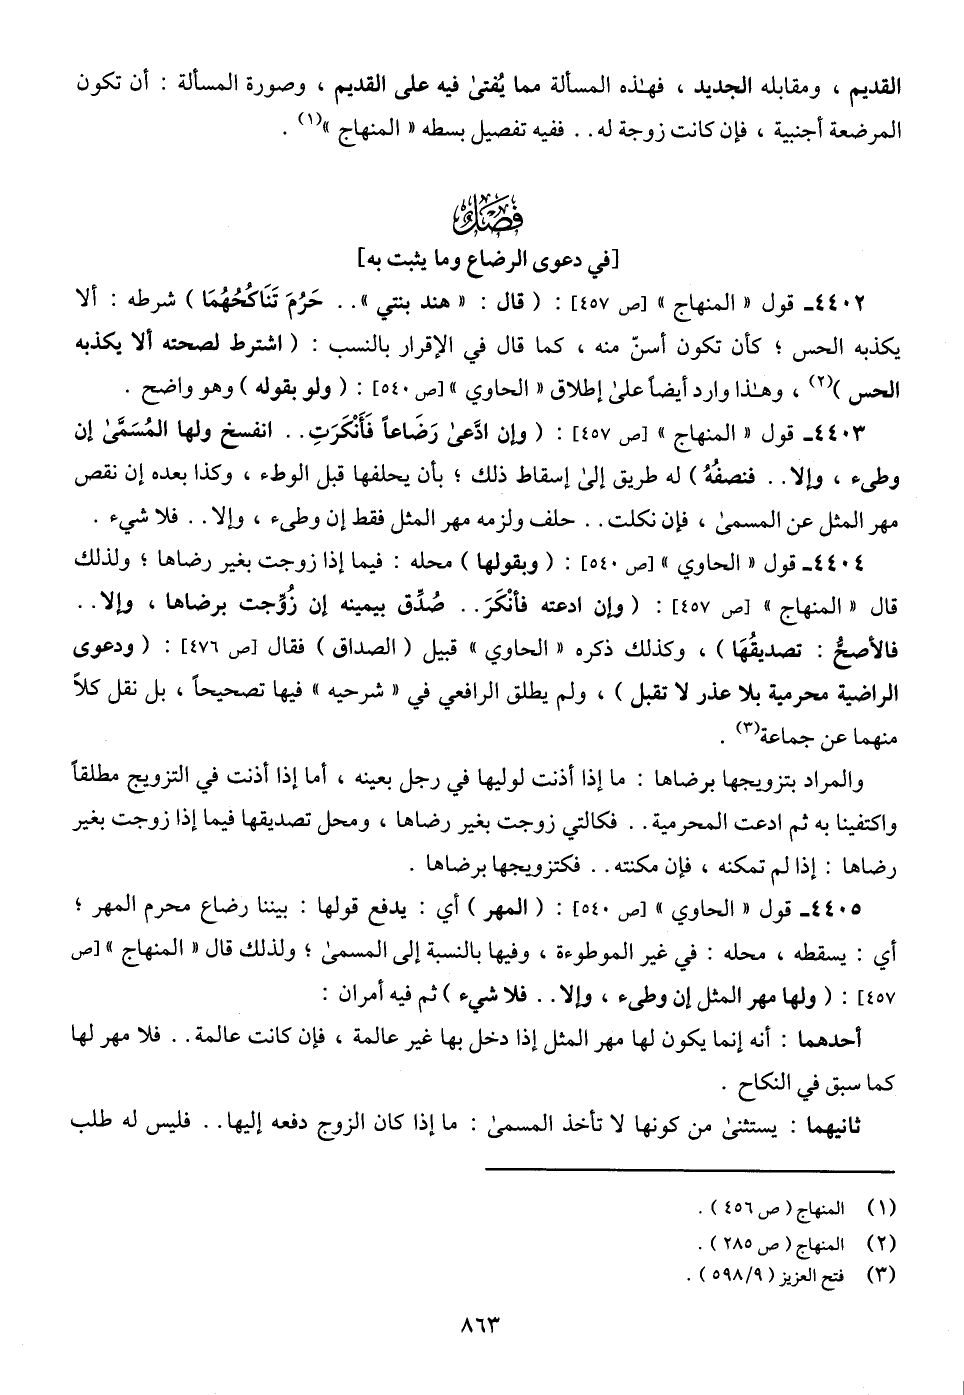 القديم ، ومقابله الجديد ، فهـٰذه المسألة مما يُفتىٰ فيه على القديم ، وصورة المسألة : أن تكون
المرضعة أجنبية ، فإن كانت زوجة له . . ففيه تفصيل بسطه « المنهاج »(١) .
فَصْلٌ
[في دعوى الرضاع وما يثبت به]
٤٤٠٢ـ قول « المنهاج » [ص ٤٥٧] : ( قال : « هند بنتي » . . حَرُمَ تَنَاكُحُهُمَا ) شرطه : ألا
يكذبه الحس ؛ كأن تكون أسنّ منه ، كما قال في الإقرار بالنسب : ( اشترط لصحته ألا يكذبه
الحس )(٢) ، وهـٰذا وارد أيضاً علىٰ إطلاق « الحاوي » [ص ٥٤٠] : ( ولو بقوله ) وهو واضح .
٤٤٠٣ـ قول « المنهاج » [ص ٤٥٧] : ( وإن ادَّعىٰ رَضَاعاً فَأَنْكَرَتِ . . انفسخ ولها المُسَمَّىٰ إن
وطىء ، وإلا . . فنصفُهُ ) له طريق إلىٰ إسقاط ذلك ؛ بأن يحلفها قبل الوطء ، وكذا بعده إن نقص
مهر المثل عن المسمىٰ ، فإن نكلت . . حلف ولزمه مهر المثل فقط إن وطىء ، وإلا . . فلا شيء .
٤٤٠٤ـ قول « الحاوي » [ص ٥٤٠] : ( وبقولها ) محله : فيما إذا زوجت بغير رضاها ؛ ولذلك
قال « المنهاج » [ص ٤٥٧] : ( وإن ادعته فأنْكَرَ . . صُدِّق بيمينه إن زُوِّجت برضاها ، وإلا . .
فالأصحُّ : تصديقُهَا ) ، وكذلك ذكره « الحاوي » قبيل ( الصداق ) فقال [ص ٤٧٦] : ( ودعوى
الراضية محرمية بلا عذر لا تقبل ) ، ولم يطلق الرافعي في « شرحيه » فيها تصحيحاً ، بل نقل كلاً
منهما عن جماعة(٣) .
والمراد بتزويجها برضاها : ما إذا أذنت لوليها في رجل بعينه ، أما إذا أذنت في التزويج مطلقاً
واكتفينا به ثم ادعت المحرمية . . فكالتي زوجت بغير رضاها ، ومحل تصديقها فيما إذا زوجت بغير
رضاها : إذا لم تمكنه ، فإن مكنته . . فكتزويجها برضاها .
٤٤٠٥ـ قول « الحاوي » [ص ٥٤٠] : ( المهر ) أي : يدفع قولها : بيننا رضاع محرم المهر ؛
أي : يسقطه ، محله : في غير الموطوءة ، وفيها بالنسبة إلى المسمىٰ ؛ ولذلك قال « المنهاج » [ص
٤٥٧] : ( ولها مهر المثل إن وطىء ، وإلا . . فلا شيء ) ثم فيه أمران :
أحدهما : أنه إنما يكون لها مهر المثل إذا دخل بها غير عالمة ، فإن كانت عالمة . . فلا مهر لها
كما سبق في النكاح .
ثانيهما : يستثنىٰ من كونها لا تأخذ المسمىٰ : ما إذا كان الزوج دفعه إليها . . فليس له طلب
(١) المنهاج ( ص ٤٥٦ ) .
(٢) المنهاج ( ص ٢٨٥ ) .
(٣) فتح العزيز ( ٥٩٨/٩ ) .
٨٦٣